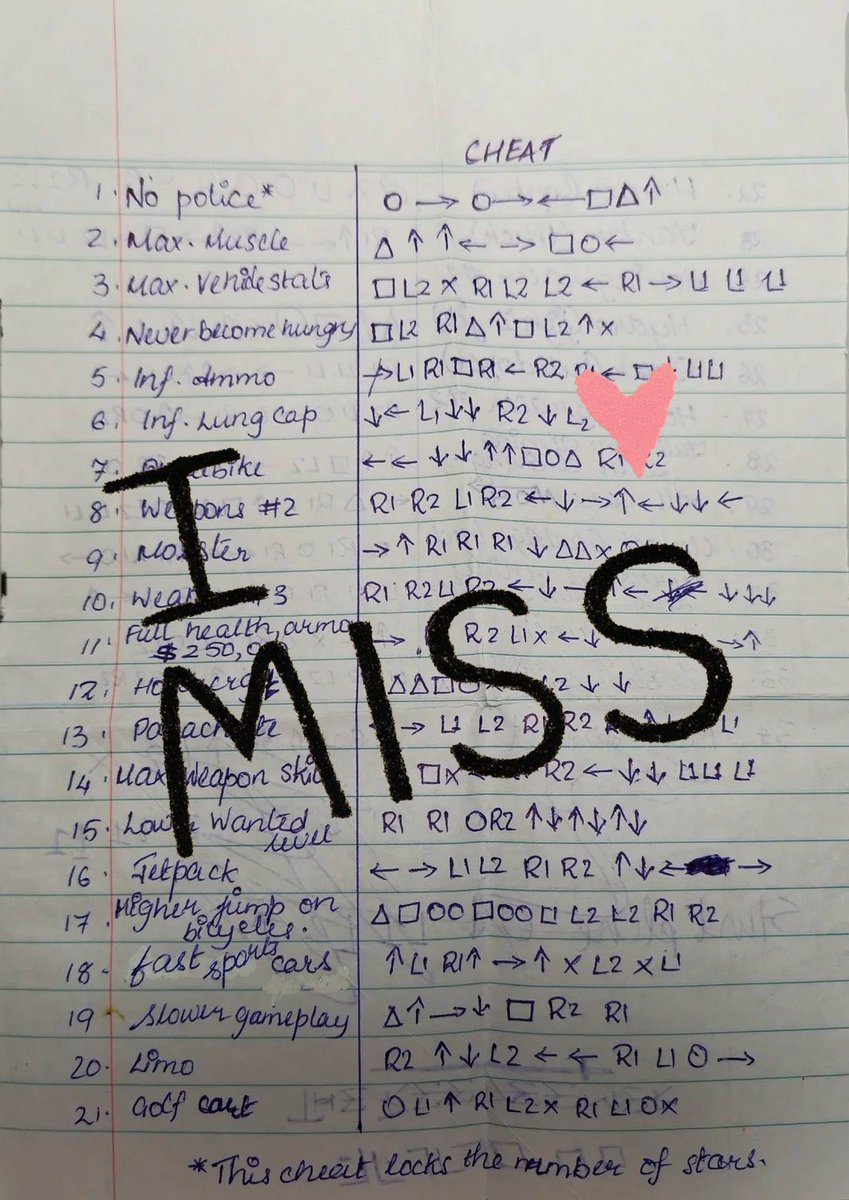 CHEAT
1. No police* O → O → ← □ △ ↑
2. Max. Muscle △ ↑ ↑ ← → □ O ←
3. Max. Vehicle stats □ L2 X R1 L2 L2 ← R1 → L1 L1 L1
4. Never become hungry □ L2 R1 △ ↑ □ L2 ↑ X
5. Inf. Ammo L1 R1 □ R1 ← R2 ← L1 L1
6. Inf. Lung cap ↓ ← L1 ↓ ↓ R2 ↓ L2
7. ← ← ↓ ↓ ↑ ↑ □ O △ R1
8. Weapons #2 R1 R2 L1 R2 ← ↓ → ↑ ← ↓ ↓ ←
9. → ↑ R1 R1 R1 ↓ △ △ X
10. 3 R1 R2 L1 R2 ← ↓ ↑ ← ↓ ↓ ↓
11. Full health, armo
$250,
→ R2 L1 X ← ↓ → ↑
12. △ △ □ L2 ↓ ↓
13. → L1 L2 R1 R2 L1
14. Max Weapon skil □ X R2 ← ↓ ↓ L1 L1 L1
15. Lower Wanted R1 R1 O R2 ↑ ↓ ↑ ↓ ↑ ↓
level
16. Jetpack ← → L1 L2 R1 R2 ↑ ↓ ← →
17. Higher jump on △ □ O O □ O O □ L2 L2 R1 R2
bicycles.
18. fast sports cars ↑ L1 R1 ↑ → ↑ X L2 X L1
19 Slower gameplay △ ↑ → ↓ □ R2 R1
20. Limo R2 ↑ ↓ L2 ← ← R1 L1 O →
21. Golf cart O L1 ↑ R1 L2 X R1 L1 O X
*This cheat locks the number of stars.
I
MISS